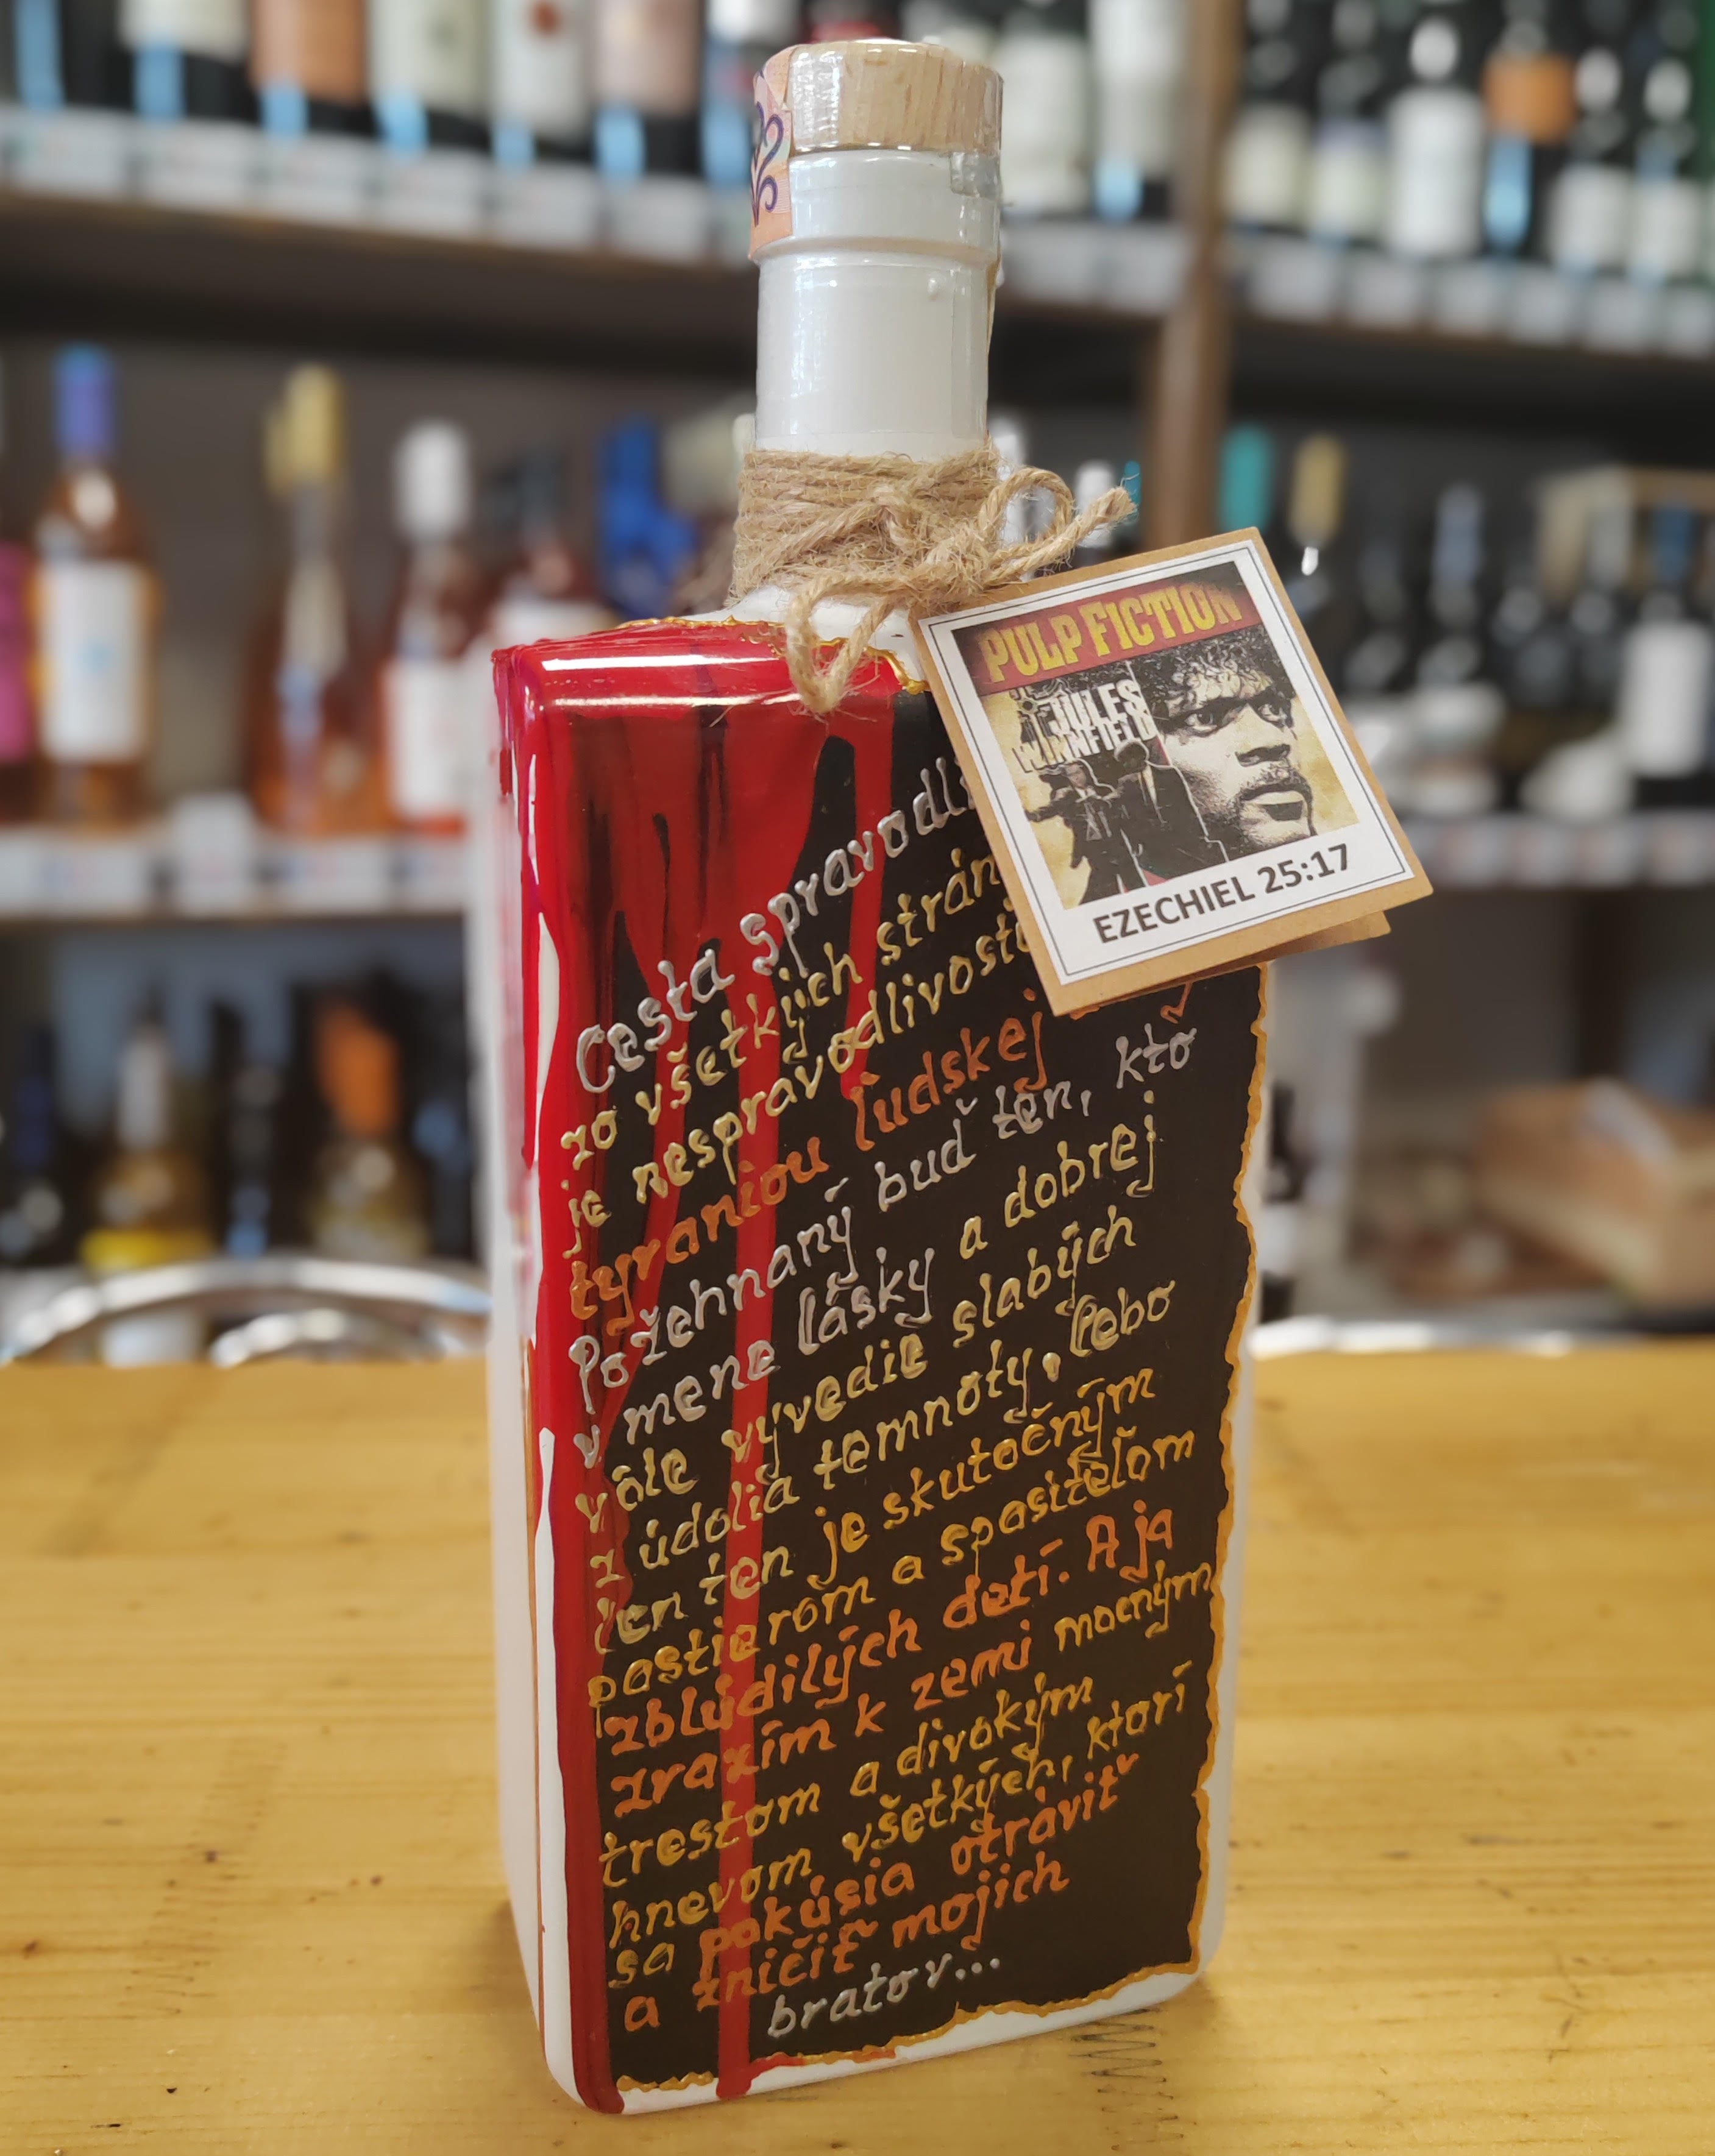 PULP FICTION
JULES
WINNFIELD
EZECHIEL 25:17
Cesta
zo všetkých strán
je nespravodlivosť
tyraniou ľudskej
Požehnaný buď ten, kto
v mene lásky a dobrej
vôle vyvedie slabých
z údolia temnoty, lebo
len ten je skutočným
pastierom a spasiteľom
zblúdilých detí. A ja
zrazím k zemi mocným
trestom a divokým
hnevom všetkých, ktorí
sa pokúsia otráviť
a zničiť mojich
bratov...